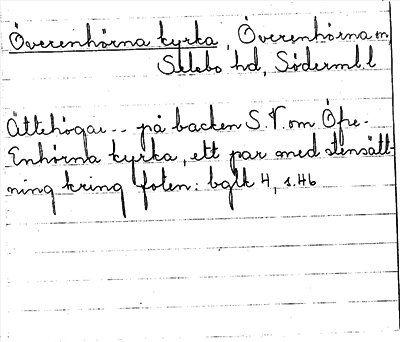 Överenhörna kyrka, Överenhörna sn
Selebo hd, Söderml. l
Ättehögar -- på backen S.V. om Öfre-
Enhörna kyrka, ett par med stensätt-
ning kring foten: bglk 4, s. 46